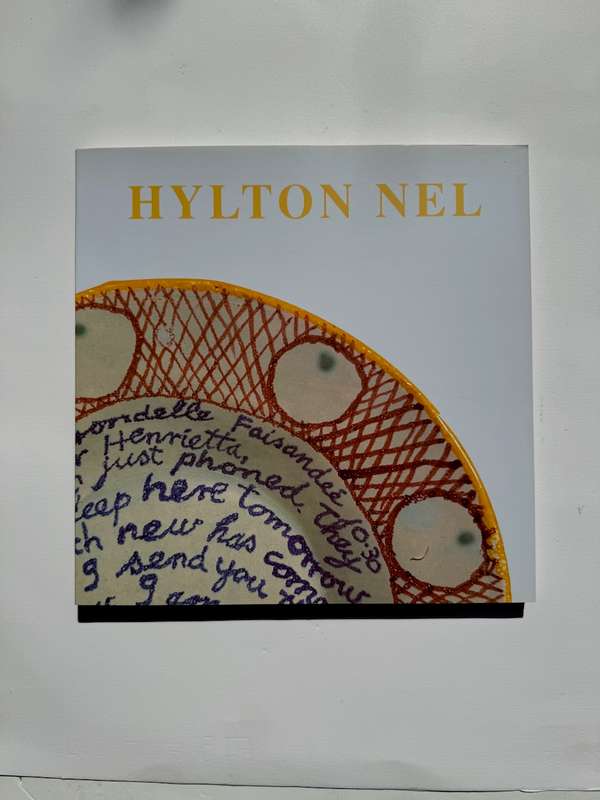 HYLTON NEL
rondelle Faisandée 10:30
Henrietta,
just phoned. They
here tomorrow
new has com
g send you
g